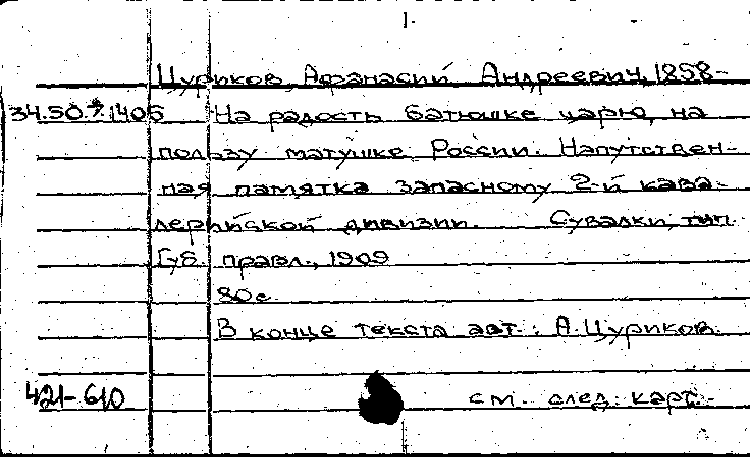 1.
Цуриков, Афанасий Андреевич, 1858-
34.50.7.1405 На радость батюшке царю, на
пользу матушке России. Напутствен-
ная памятка запасному 2-й кава-
лерийской дивизии. Сувалки, тип.
Губ. правл., 1909
80 с.
В конце текста авт.: А. Цуриков.
421-610 см. след. карт.-